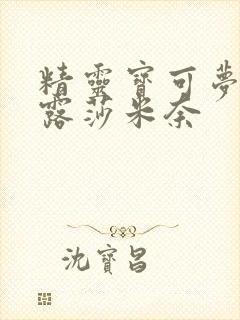 精靈寶可夢
露莎米奈
沈寶昌